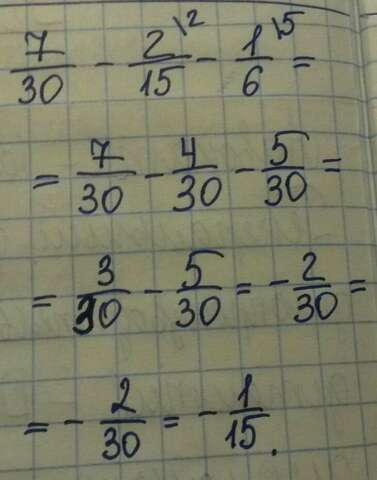 7/30 - 2\2/15 - 1\5/6 =
= 7/30 - 4/30 - 5/30 =
= 3/30 - 5/30 = - 2/30 =
= - 2/30 = - 1/15.